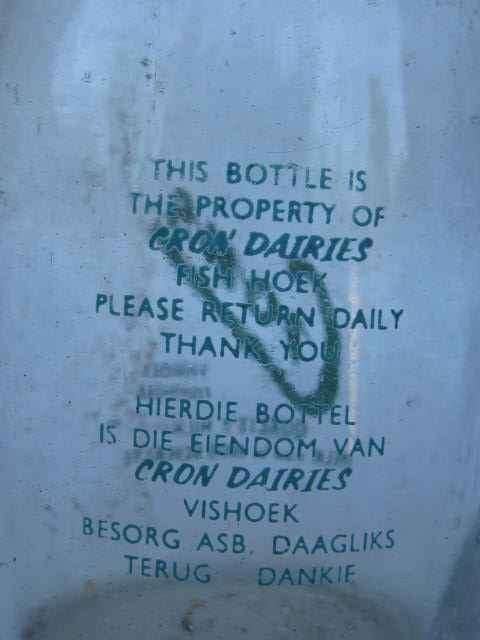 THIS BOTTLE IS
THE PROPERTY OF
CRON DAIRIES
FISH HOEK
PLEASE RETURN DAILY
THANK YOU
HIERDIE BOTTEL
IS DIE EIENDOM VAN
CRON DAIRIES
VISHOEK
BESORG ASB. DAAGLIKS
TERUG DANKIE